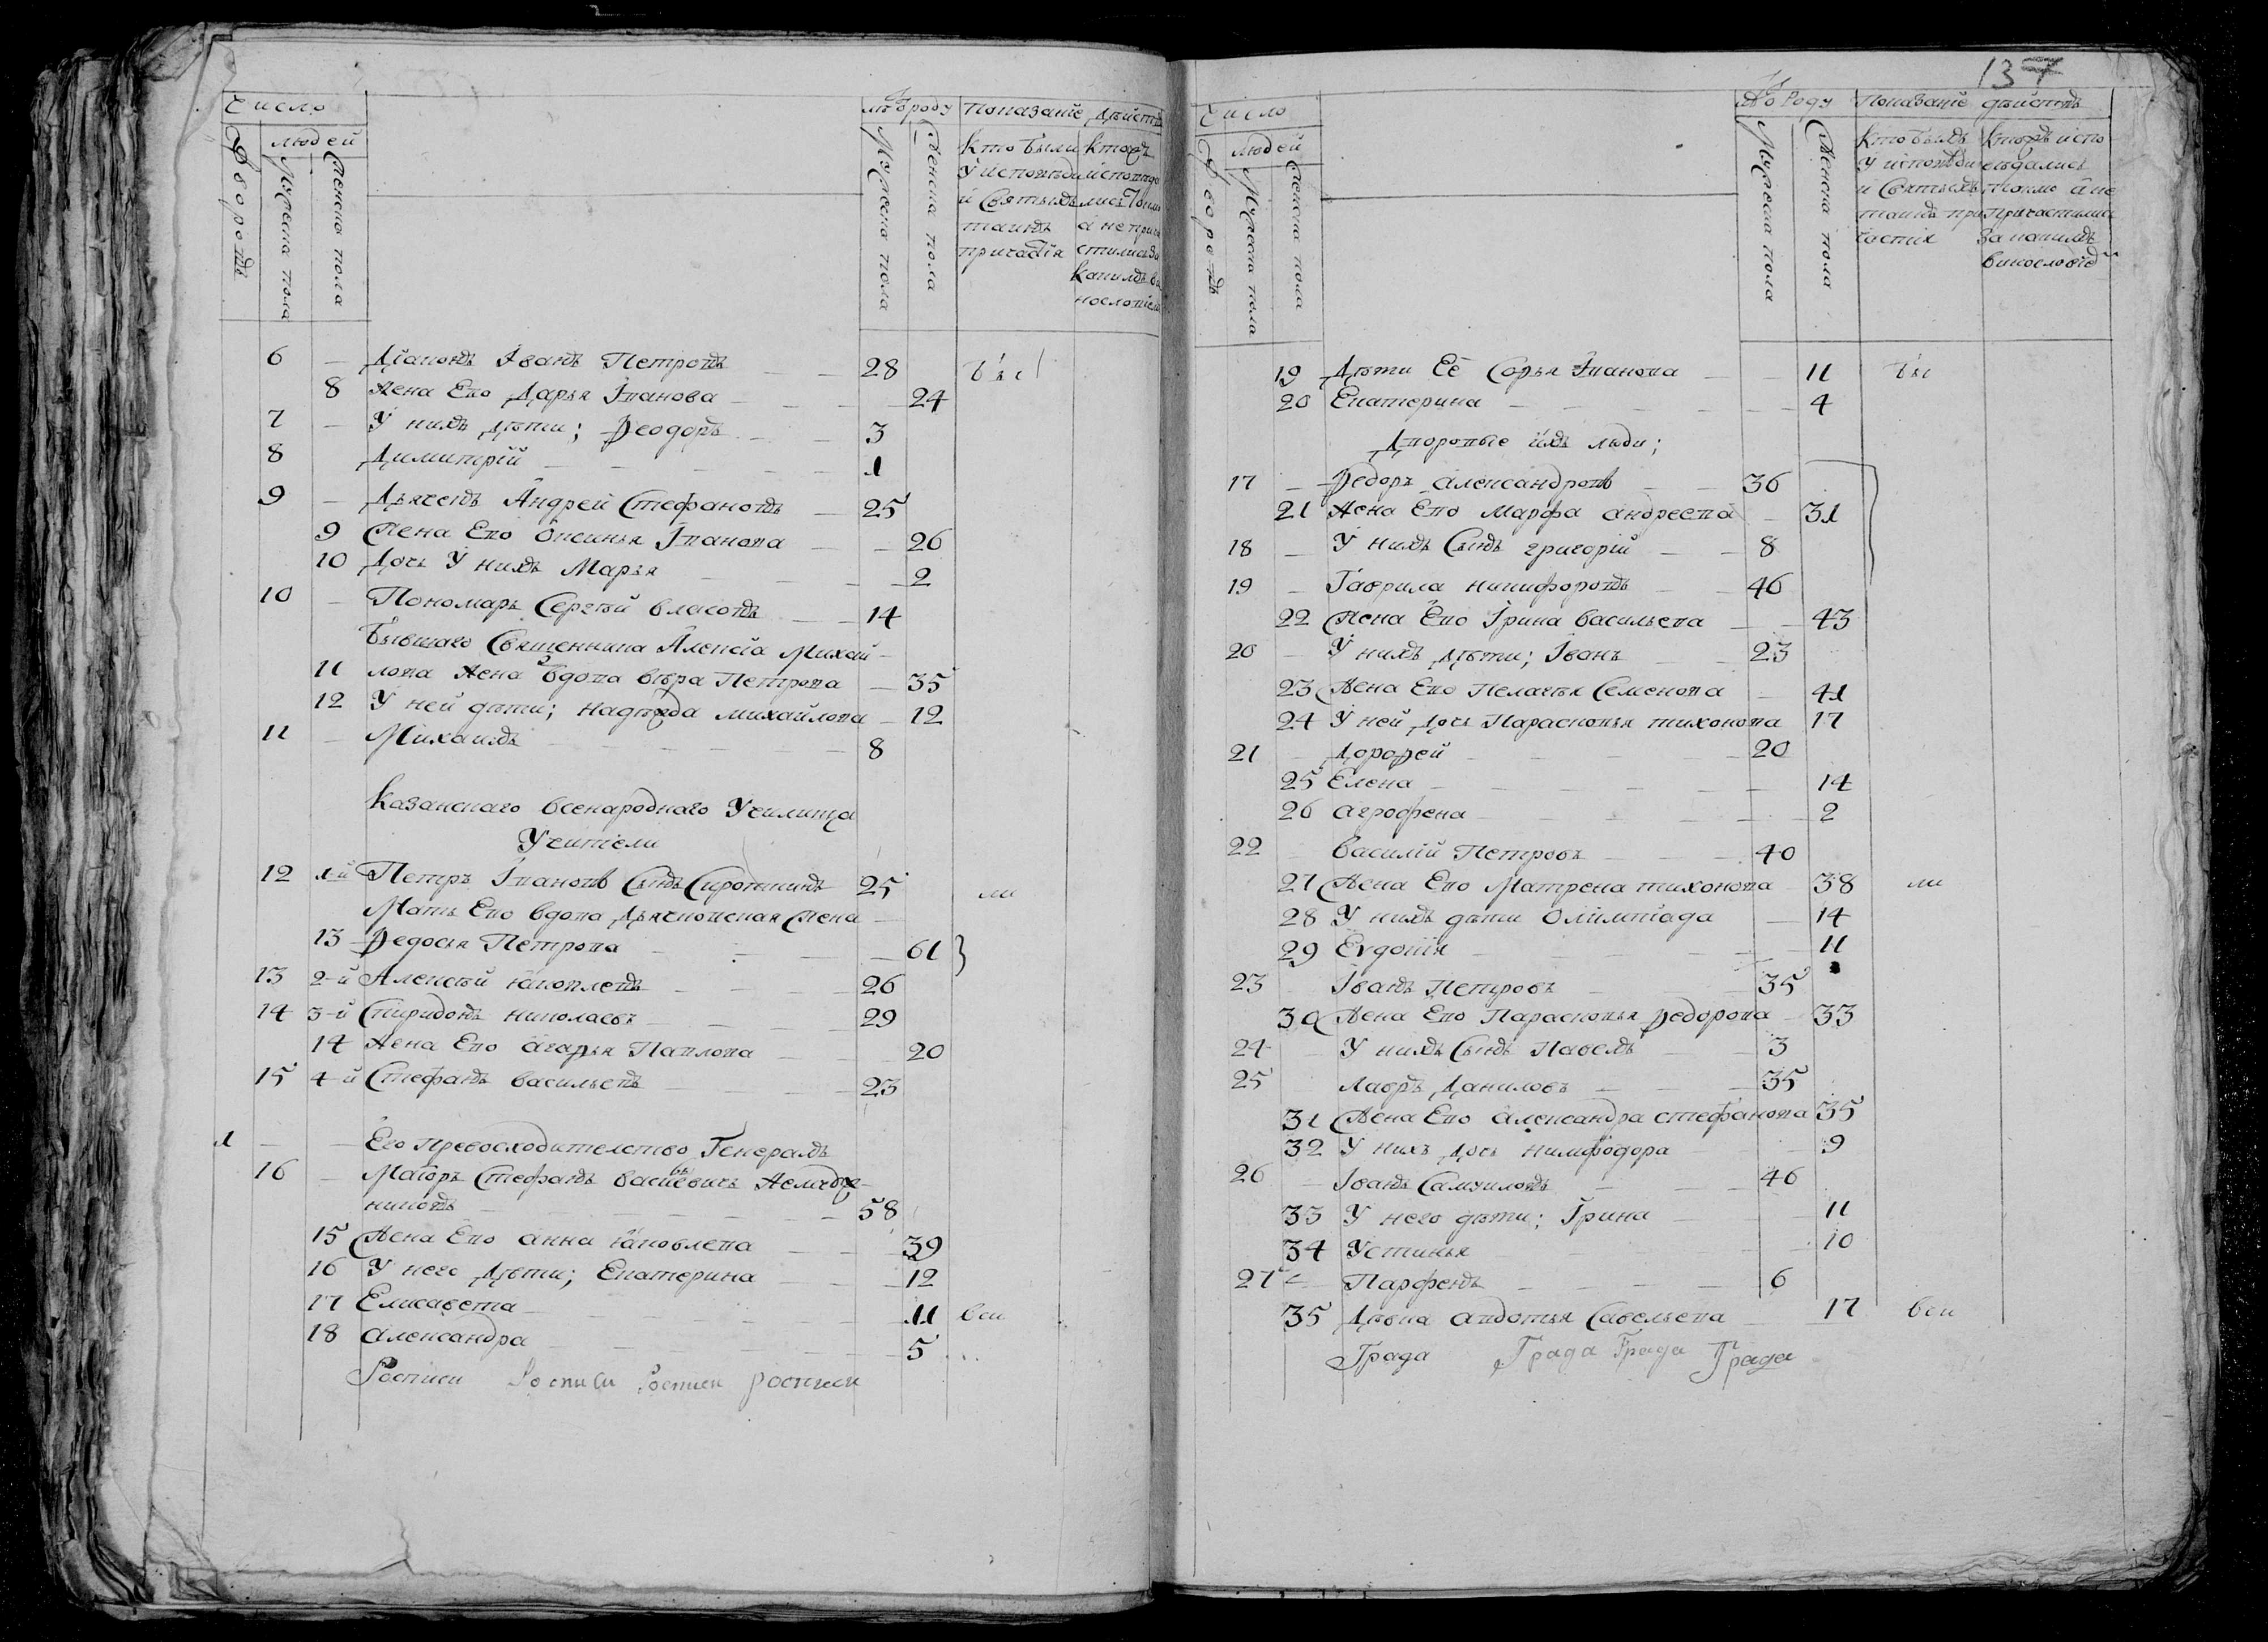 137
Число
людей
Дворовъ
Мужеска пола
Женска пола
Мужеска пола
Женска пола
Показанїе дѣйств
Кто были
у исповѣди
и Святыхъ
таинъ
причастїя
6 — Дїаконъ Іванъ Петровъ — 28 бы
8 Жена Его Дарья Іванова — 24
7 — У нихъ дѣти; Ѳеодоръ — 3
8 Димитрїй — 1
9 — Дьячекъ Андрей Стефановъ — 25
9 Жена Его Ѻксинья Іванова — 26
10 Дочь У нихъ Марья — 2
10 — Пономарь Сергѣй Власовъ — 14
Бывшаго Священника Алексїа Михай-
11 лова Жена вдова Вѣра Петрова — 35
12 У ней дѣти; Надежда Михайлова — 12
11 — Михаилъ — 8
Казанскаго Всенароднаго Училища
Учители
12 1-й Петръ Івановъ Сынъ Сыроткинъ 25 ли
Мать Его вдова Дьяконская Жена —
13 Ѳедосья Петрова — 61
13 2-й Алексѣй Яковлевъ — 26
14 3-й Спиридонъ Николаевъ — 29
14 Жена Его Агаѳья Павлова — 20
15 4-й Стефанъ Васильевъ — 23
1 — — Его Превосходителство Генералъ
16 — Маїоръ Стефанъ Васильевичь Жемчуж-
никовъ — 58
15 Жена Его Анна Яковлева — 39
16 У него Дѣти; Екатерина — 12
17 Елисавета — 11 вси
18 Александра — 5
Росписи Росписи Росписи росписи
Число
людей
Дворовъ
Мужеска пола
Женска пола
Мужеска пола
Женска пола
Показанїе дѣйствъ
Кто былъ
у исповѣди
и Святыхъ
таинъ при
частїя
19 Дѣти Её Софья Іванова — 11 бы
20 Екатерина — 4
Дворовые ихъ люди;
17 — Ѳедоръ Александровъ — 36
21 Жена Его Марѳа Андреева — 31
18 — У нихъ Сынъ Григорїй — 8
19 — Гаврила Никифоровъ — 46
22 Жена Его Ірина Васильева — 43
20 — У нихъ дѣти; Іванъ — 23
23 Жена Его Пелагья Семенова — 41
24 У ней Дочь Парасковья Тихонова 17
21 — Дороѳей — 20
25 Елена — 14
26 Агрофена — 2
22 — Василїй Петровъ — 40
27 Жена Его Матрена Тихонова — 38 ли
28 У нихъ дѣти Олимпїада — 14
29 Еvдокїя — 11
23 Іванъ Петровъ — 35
30 Жена Его Парасковья Ѳедорова — 33
24 — У нихъ Сынъ Павелъ — 3
25 Лавръ Даниловъ — 35
31 Жена Его Александра Стефанова 35
32 У нихъ Дочь Нимфодора — 9
26 — Іванъ Самуиловъ — 46
33 У него дѣти; Ірина — 11
34 Устинья — 10
27 — Парфенъ — 6
35 Дѣвка Авдотья Савельева — 17 вси
Града Града Града Града